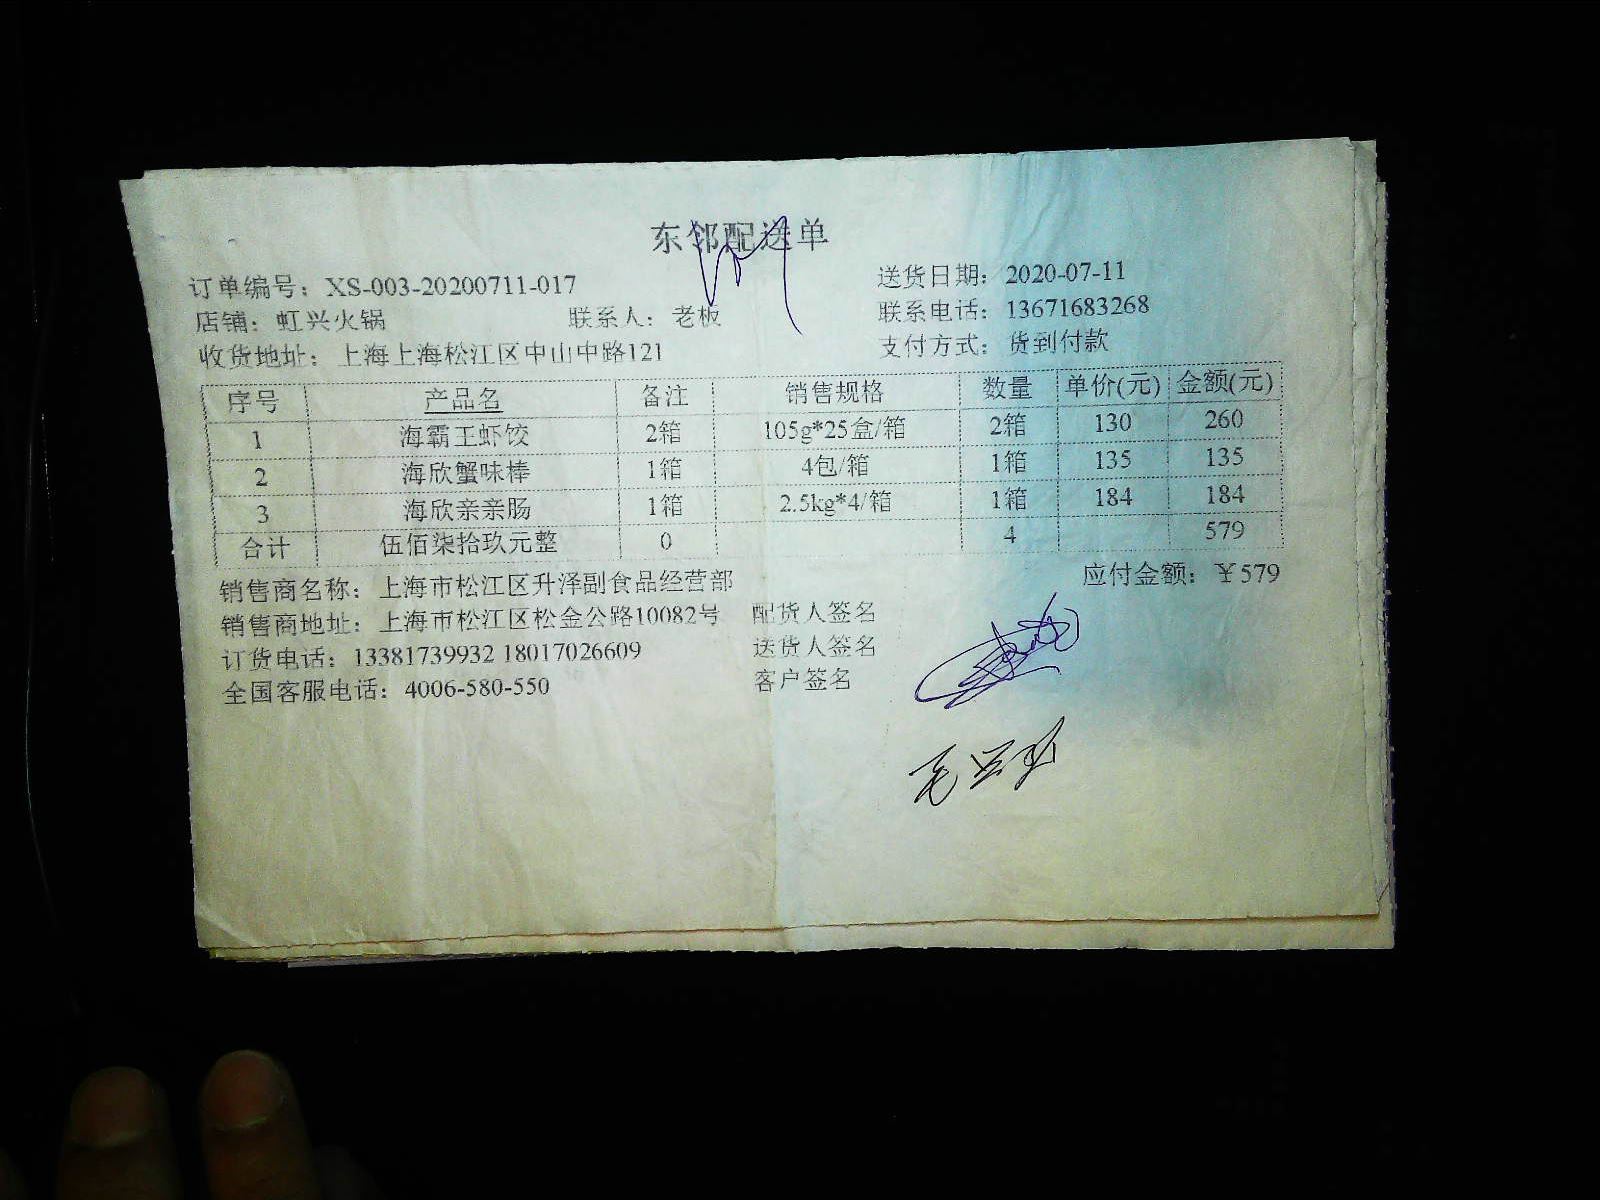 东邻配送单
订单编号：XS-003-20200711-017 送货日期：2020-07-11
店铺：虹兴火锅 联系人：老板 联系电话：13671683268
收货地址：上海上海松江区中山中路121 支付方式：货到付款
序号 产品名 备注 销售规格 数量 单价(元) 金额(元)
1 海霸王虾饺 2箱 105g*25盒/箱 2箱 130 260
2 海欣蟹味棒 1箱 4包/箱 1箱 135 135
3 海欣亲亲肠 1箱 2.5kg*4/箱 1箱 184 184
合计 伍佰柒拾玖元整 0 4 579
销售商名称：上海市松江区升泽副食品经营部 应付金额：￥579
销售商地址：上海市松江区松金公路10082号 配货人签名
订货电话：13381739932 18017026609 送货人签名
全国客服电话：4006-580-550 客户签名